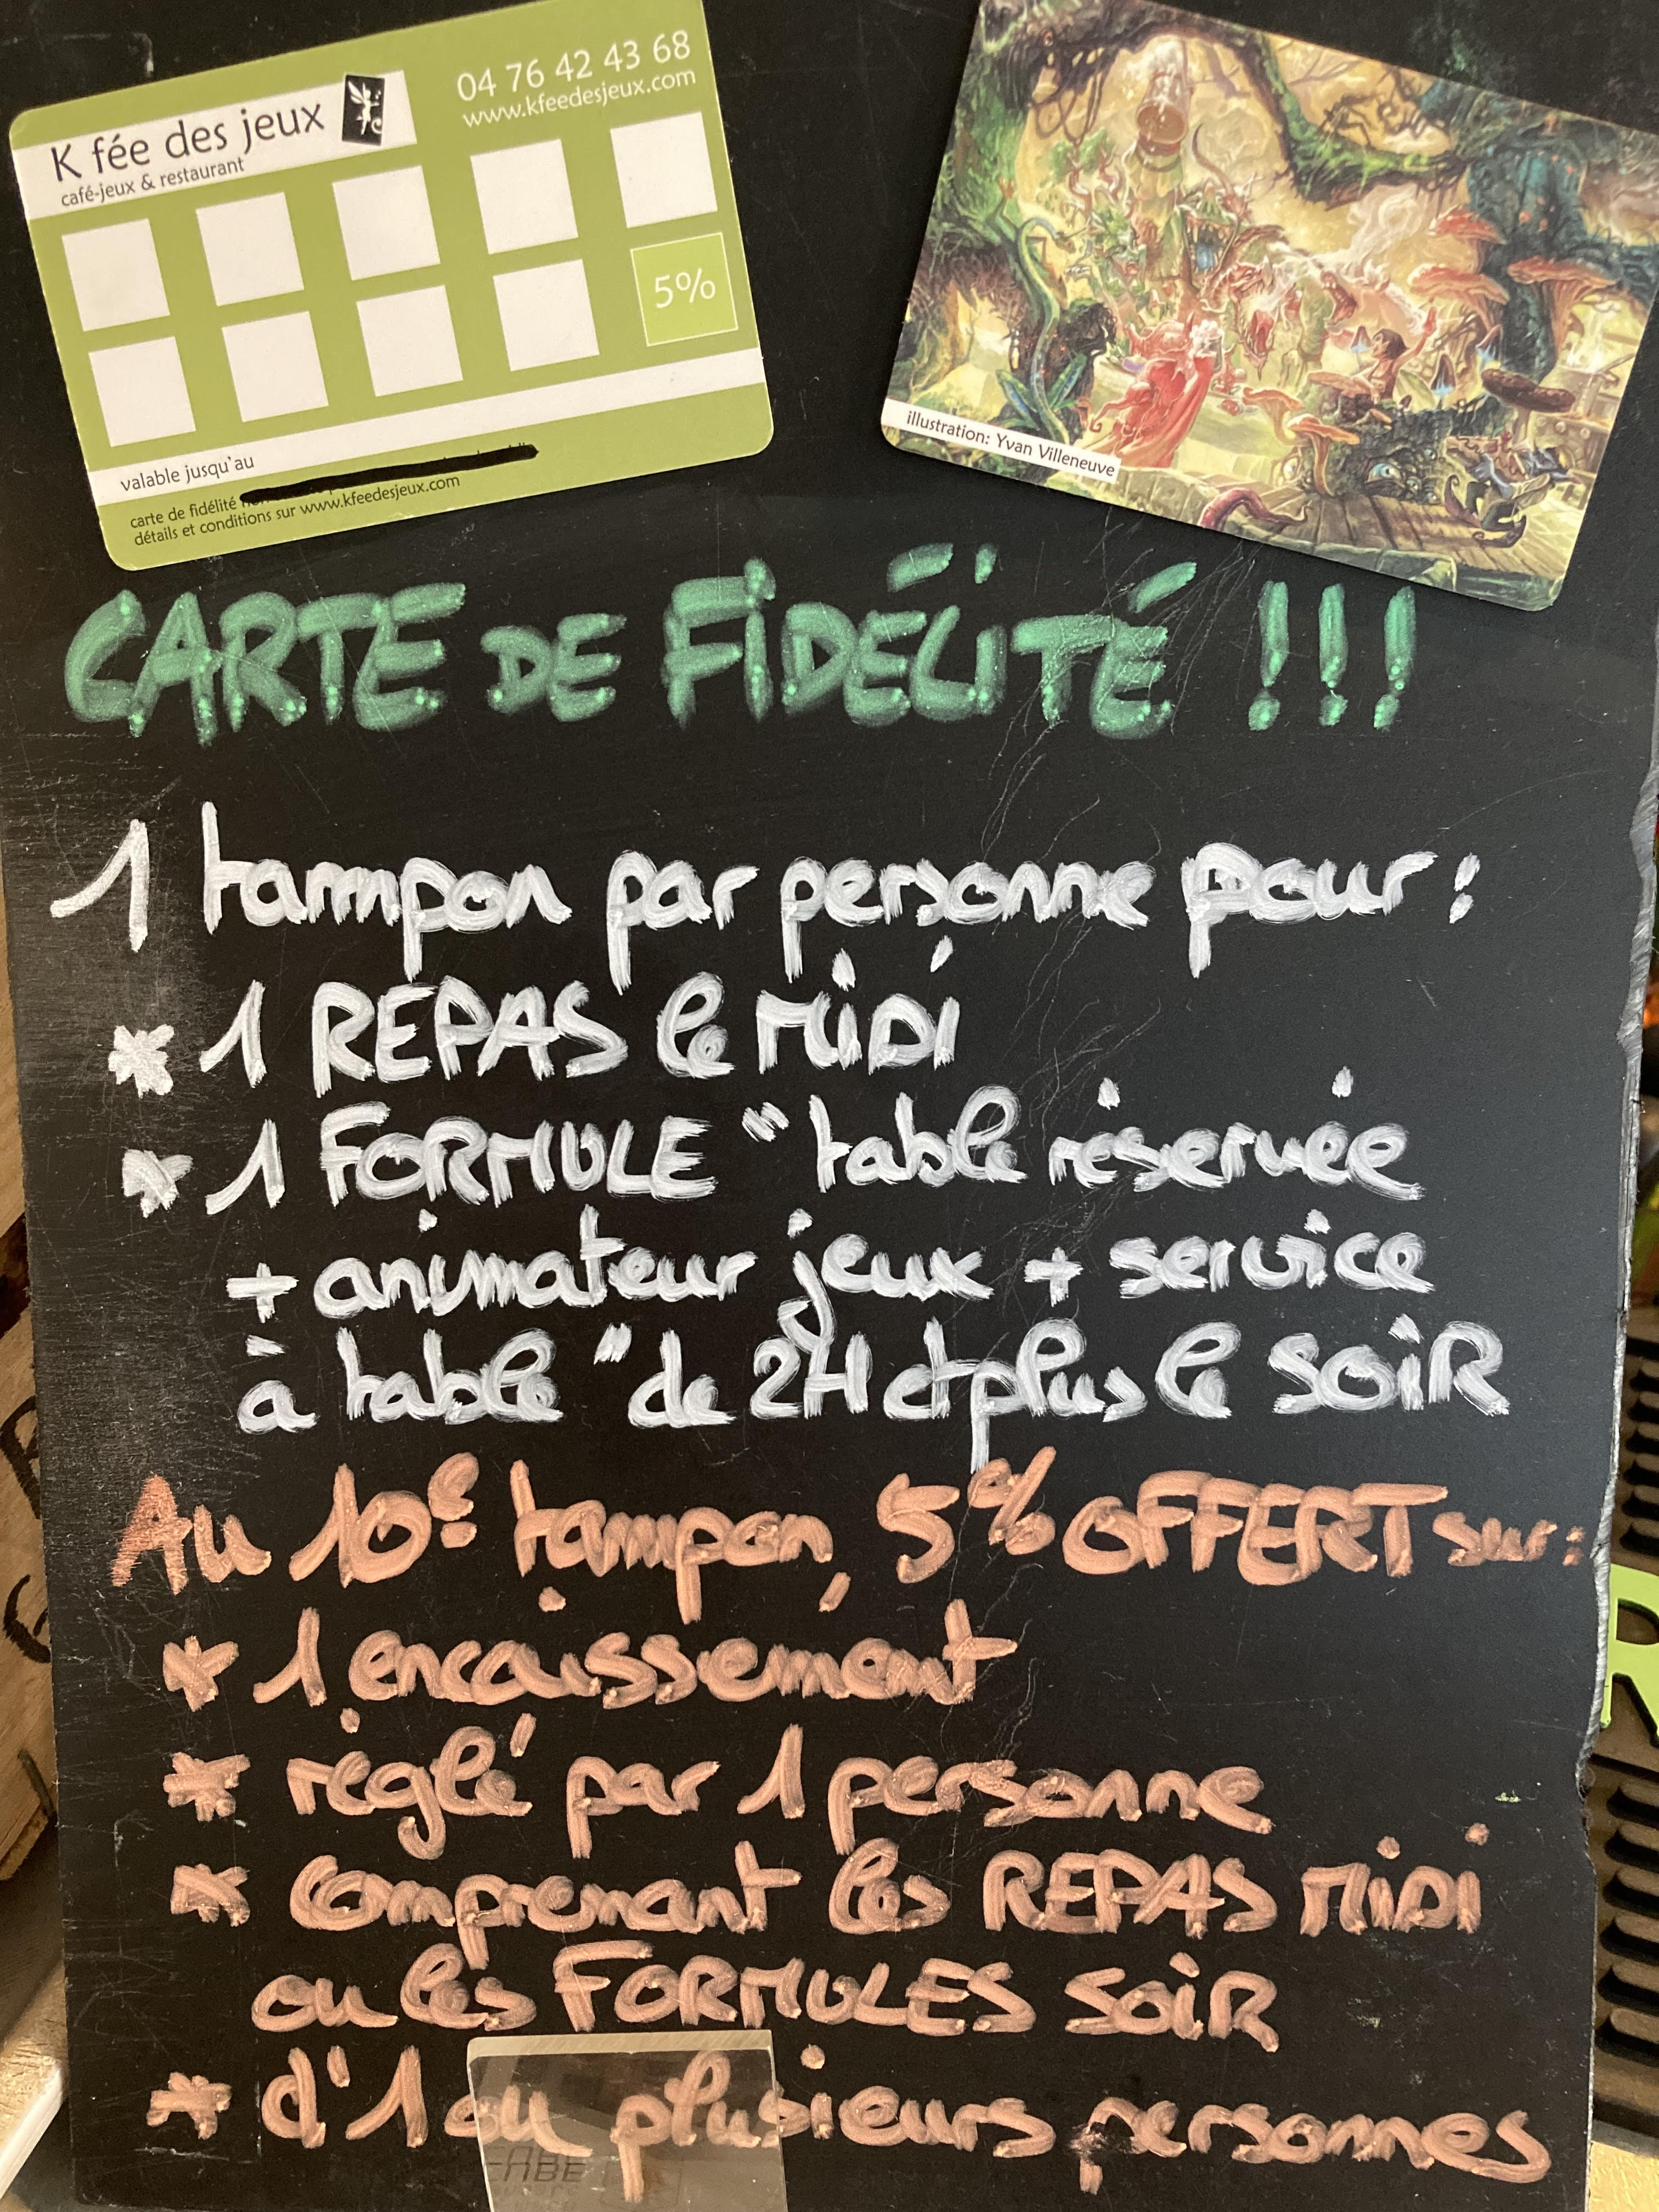 K fée des jeux
café-jeux & restaurant
04 76 42 43 68
www.kfeedesjeux.com
5%
valable jusqu'au
carte de fidélité
détails et conditions sur www.kfeedesjeux.com
illustration: Yvan Villeneuve
CARTE DE FIDÉLITÉ !!!
1 tampon par personne pour :
* 1 REPAS le MIDI
* 1 FORMULE "table réservée
+ animateur jeux + service
à table" de 2H et plus le SOIR
Au 10e tampon, 5% OFFERT sur :
* 1 encaissement
* réglé par 1 personne
* comprenant les REPAS MIDI
ou les FORMULES SOIR
* d'1 ou plusieurs personnes